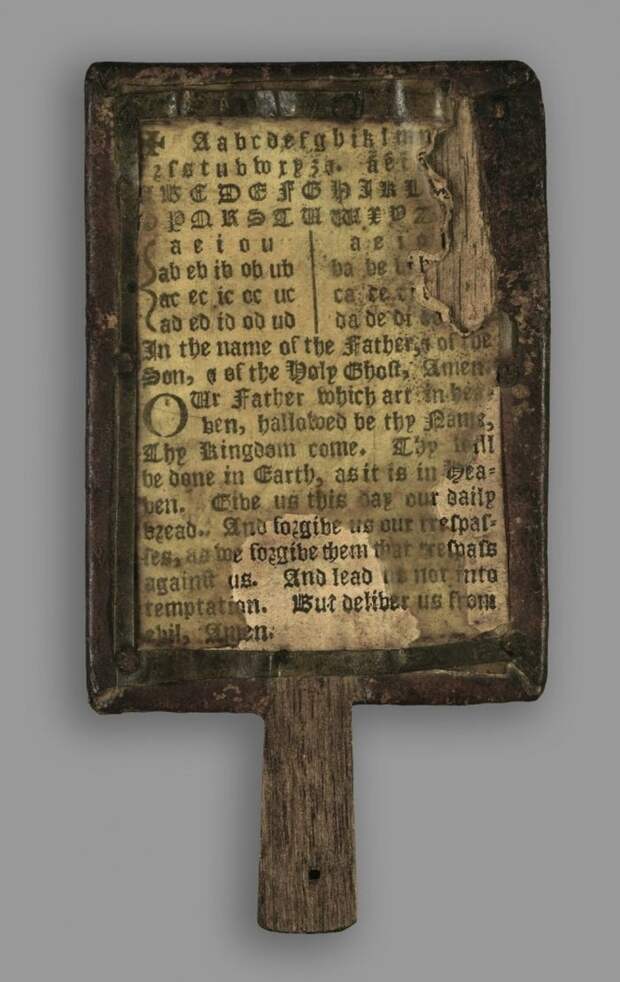 ✠ Aabcdefghiklmn
rſstuvwxyz. ãẽĩ
BCDEFGHIKL
PQRSTUWXYZ
a e i o u | a e i o
ab eb ib ob ub | ba be bi b
ac ec ic oc uc | ca ce ci
ad ed id od ud | da de di
In the name of the Father, & of the
Son, & of the Holy Ghoſt, Amen.
OUr Father which art in hea-
ven, hallowed be thy Name,
Thy Kingdom come. Thy will
be done in Earth, as it is in Hea-
ven. Give us this day our daily
bread. And forgive us our treſpaſ-
ſes, as we forgive them that treſpaſs
againſt us. And lead us not into
temptation. But deliver us from
evil, Amen.